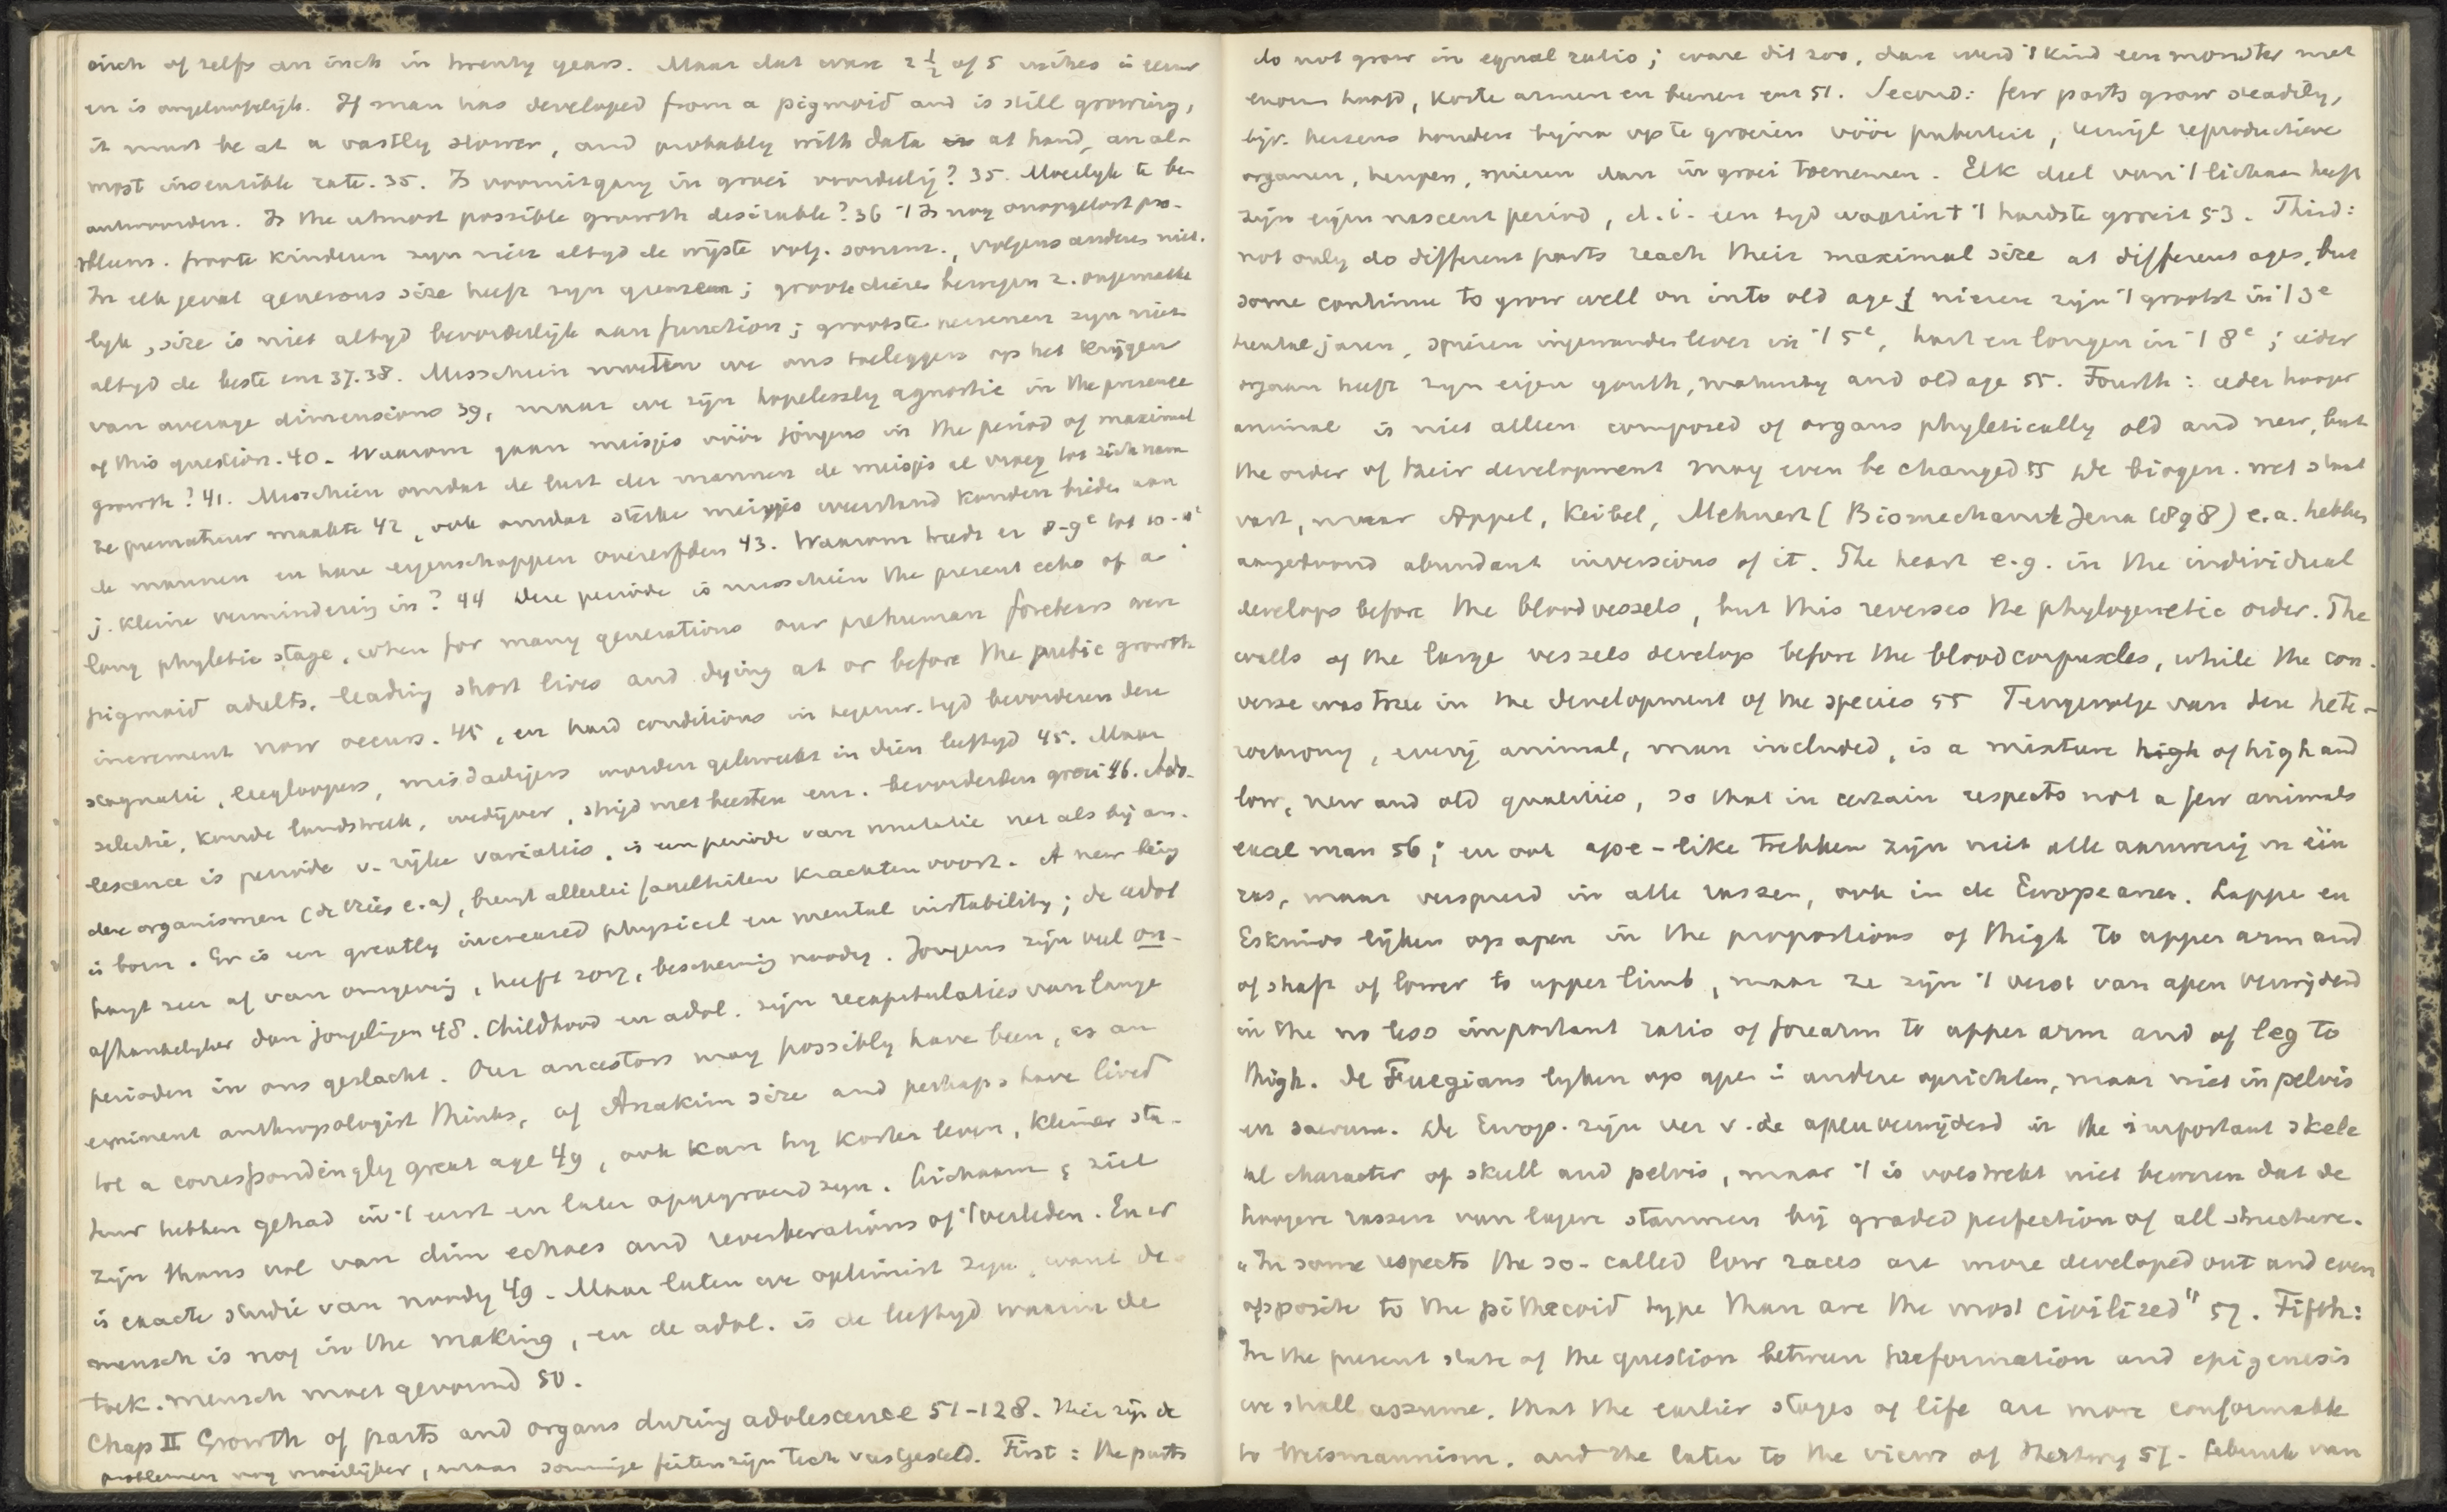 inch of zelfs an inch in twenty years. Maar dat ware 2 1/2 of 5 inches in eeuw
en is ongelooflijk. If man has developed from a pigmoid and is still growing,
it must be at a vastly slower, and probably with data at hand, an al-
most insensible rate. 35. Is vooruitgang in groei voordeelig? 35. Moeilyk te be-
antwoorden. Is the utmost possible growth desirable? 36 't Is nog onopgelost pro-
bleem. Groote kinderen zyn niet altyd de wijste volg. sommr., volgens anderen niet.
In elk geval generous size heeft zyn grenzen; groote dieren bewegen z. ongemakke
lyk, size is niet altyd bevorderlijk aan function; grootste hersenen zyn niet
altyd de beste enz 37.38. Misschien moeten we ons toeleggen op het krijgen
van average dimensions 39, maar we zijn hopelessly agnostic in the presence
of this question. 40. Waarom gaan meisjes vóór jongens in the period of maximal
growth? 41. Misschien omdat de lust der mannen de meisjes al vroeg tot zich nam
ze prematuur maakte 42, ook omdat sterke meisjes weerstand konden bieden aan
de mannen en hare eigenschappen overerfden 43. Waarom treedt er 8-9e tot 10-11e
j. kleine vermindering in? 44 Deze periode is misschien the present echo of a
long phyletic stage, when for many generations our prehuman forebears were
pigmoid adults, leading short lives and dying at or before the pubic growth
increment now occurs. 45, en hard conditions in tegenw. tyd bevorderen deze
stagnatie, wegloopers, misdadigers worden gekweekt in dien leeftyd 45. Maar
selectie, koude landstreek, wedijver, strijd met beesten enz. bevorderden groei 46. Ado-
lescence is periode v. rijke variatie, is een periode van mutatie net als bij an-
dere organismen (de Vries e.a), brengt allerlei faculteiten krachten voort. A new being
is born. Er is een greatly increased physical en mental instability; de adol
hangt zeer af van omgeving, heeft zorg, bescherming noodig. Jongens zijn veel on-
afhankelyker dan jongelingen 48. Childhood en adol. zijn recapitulaties van lange
perioden in ons geslacht. Our ancestors may possibly have been, as an
eminent anthropologist thinks, of Anakim size and perhaps have lived
to a correspondingly great age 49, ook kan hy korter leven, kleiner sta-
tuur hebben gehad in 't eerst en later opgegroeid zyn. Lichaam & ziel
zijn thans vol van dim echoes and reverberations of 't verleden. En er
is exacte studie van noodig 49. Maar laten we optimist zyn, want de
mensch is nog in the making, en de adol. is de leeftyd waarin de
toek. mensch moet gevormd 50.
Chap II Growth of parts and organs during adolescence 51-128. Hier zijn de
problemen nog moeilijker, maar sommige feiten zijn toch vastgesteld. First: the parts
do not grow in equal ratio; ware dit zoo, dan werd 't kind een monster met
enorm hoofd, korte armen en beenen enz 51. Second: few parts grow steadily,
bijv. hersens houden bijna op te groeien vóór puberteit, terwijl reproductieve
organen, heupen, spieren dan in groei toenemen. Elk deel van 't lichaam heeft
zijn eigen nascent period, d.i. een tyd waarin 't 't hardste groeit 53. Third:
not only do different parts reach their maximal size at different ages, but
some continue to grow well on into old age; nieren zijn 't grootst in 't 3e
tiental jaren, spieren ingewanden lever in 't 5e, hart en longen in 't 8e; ieder
orgaan heeft zyn eigen youth, maturity and old age 55. Fourth: ieder hooger
animal is niet alleen composed of organs phyletically old and new, but
the order of their development may even be changed 55 De biogen. wet staat
vast, maar Appel, Keibel, Mehnert (Biomechanik Jena 1898) e.a. hebben
aangetoond abundant inversions of it. The heart e.g. in the individual
develops before the bloodvessels, but this reverses the phylogenetic order. The
walls of the large vessels develop before the bloodcorpuscles, while the con-
verse was true in the development of the species 55 Tengevolge van deze hete-
rochrony, every animal, man included, is a mixture high of high and
low, new and old qualities, so that in certain respects not a few animals
excel man 56; en ook ape-like trekken zijn niet alle aanwezig in één
ras, maar verspreid in alle rassen, ook in de Europeanen. Lappe en
Eskimos lijken op apen in the proportions of thigh to upper arm and
of shaft of lower to upper limb, maar ze zijn 't verst van apen verwijderd
in the no less important ratio of forearm to upper arm and of leg to
thigh. De Fuegians lyken op apen in andere opzichten, maar niet in pelvis
en sacrum. De Europ. zijn ver v. de apen verwijderd in the important skele
tal character of skull and pelvis, maar 't is volstrekt niet bewezen dat de
hoogere rassen van lagere stammen bij graded perfection of all structure.
„In some respects the so-called low races are more developed out and even
opposite to the pithecoid type than are the most civilized" 57. Fifth:
In the present state of the question between preformation and epigenesis
we shall assume, that the earlier stages of life are more conformable
to Weismannism, and the later to the views of Hertwig 57. Gebruik van